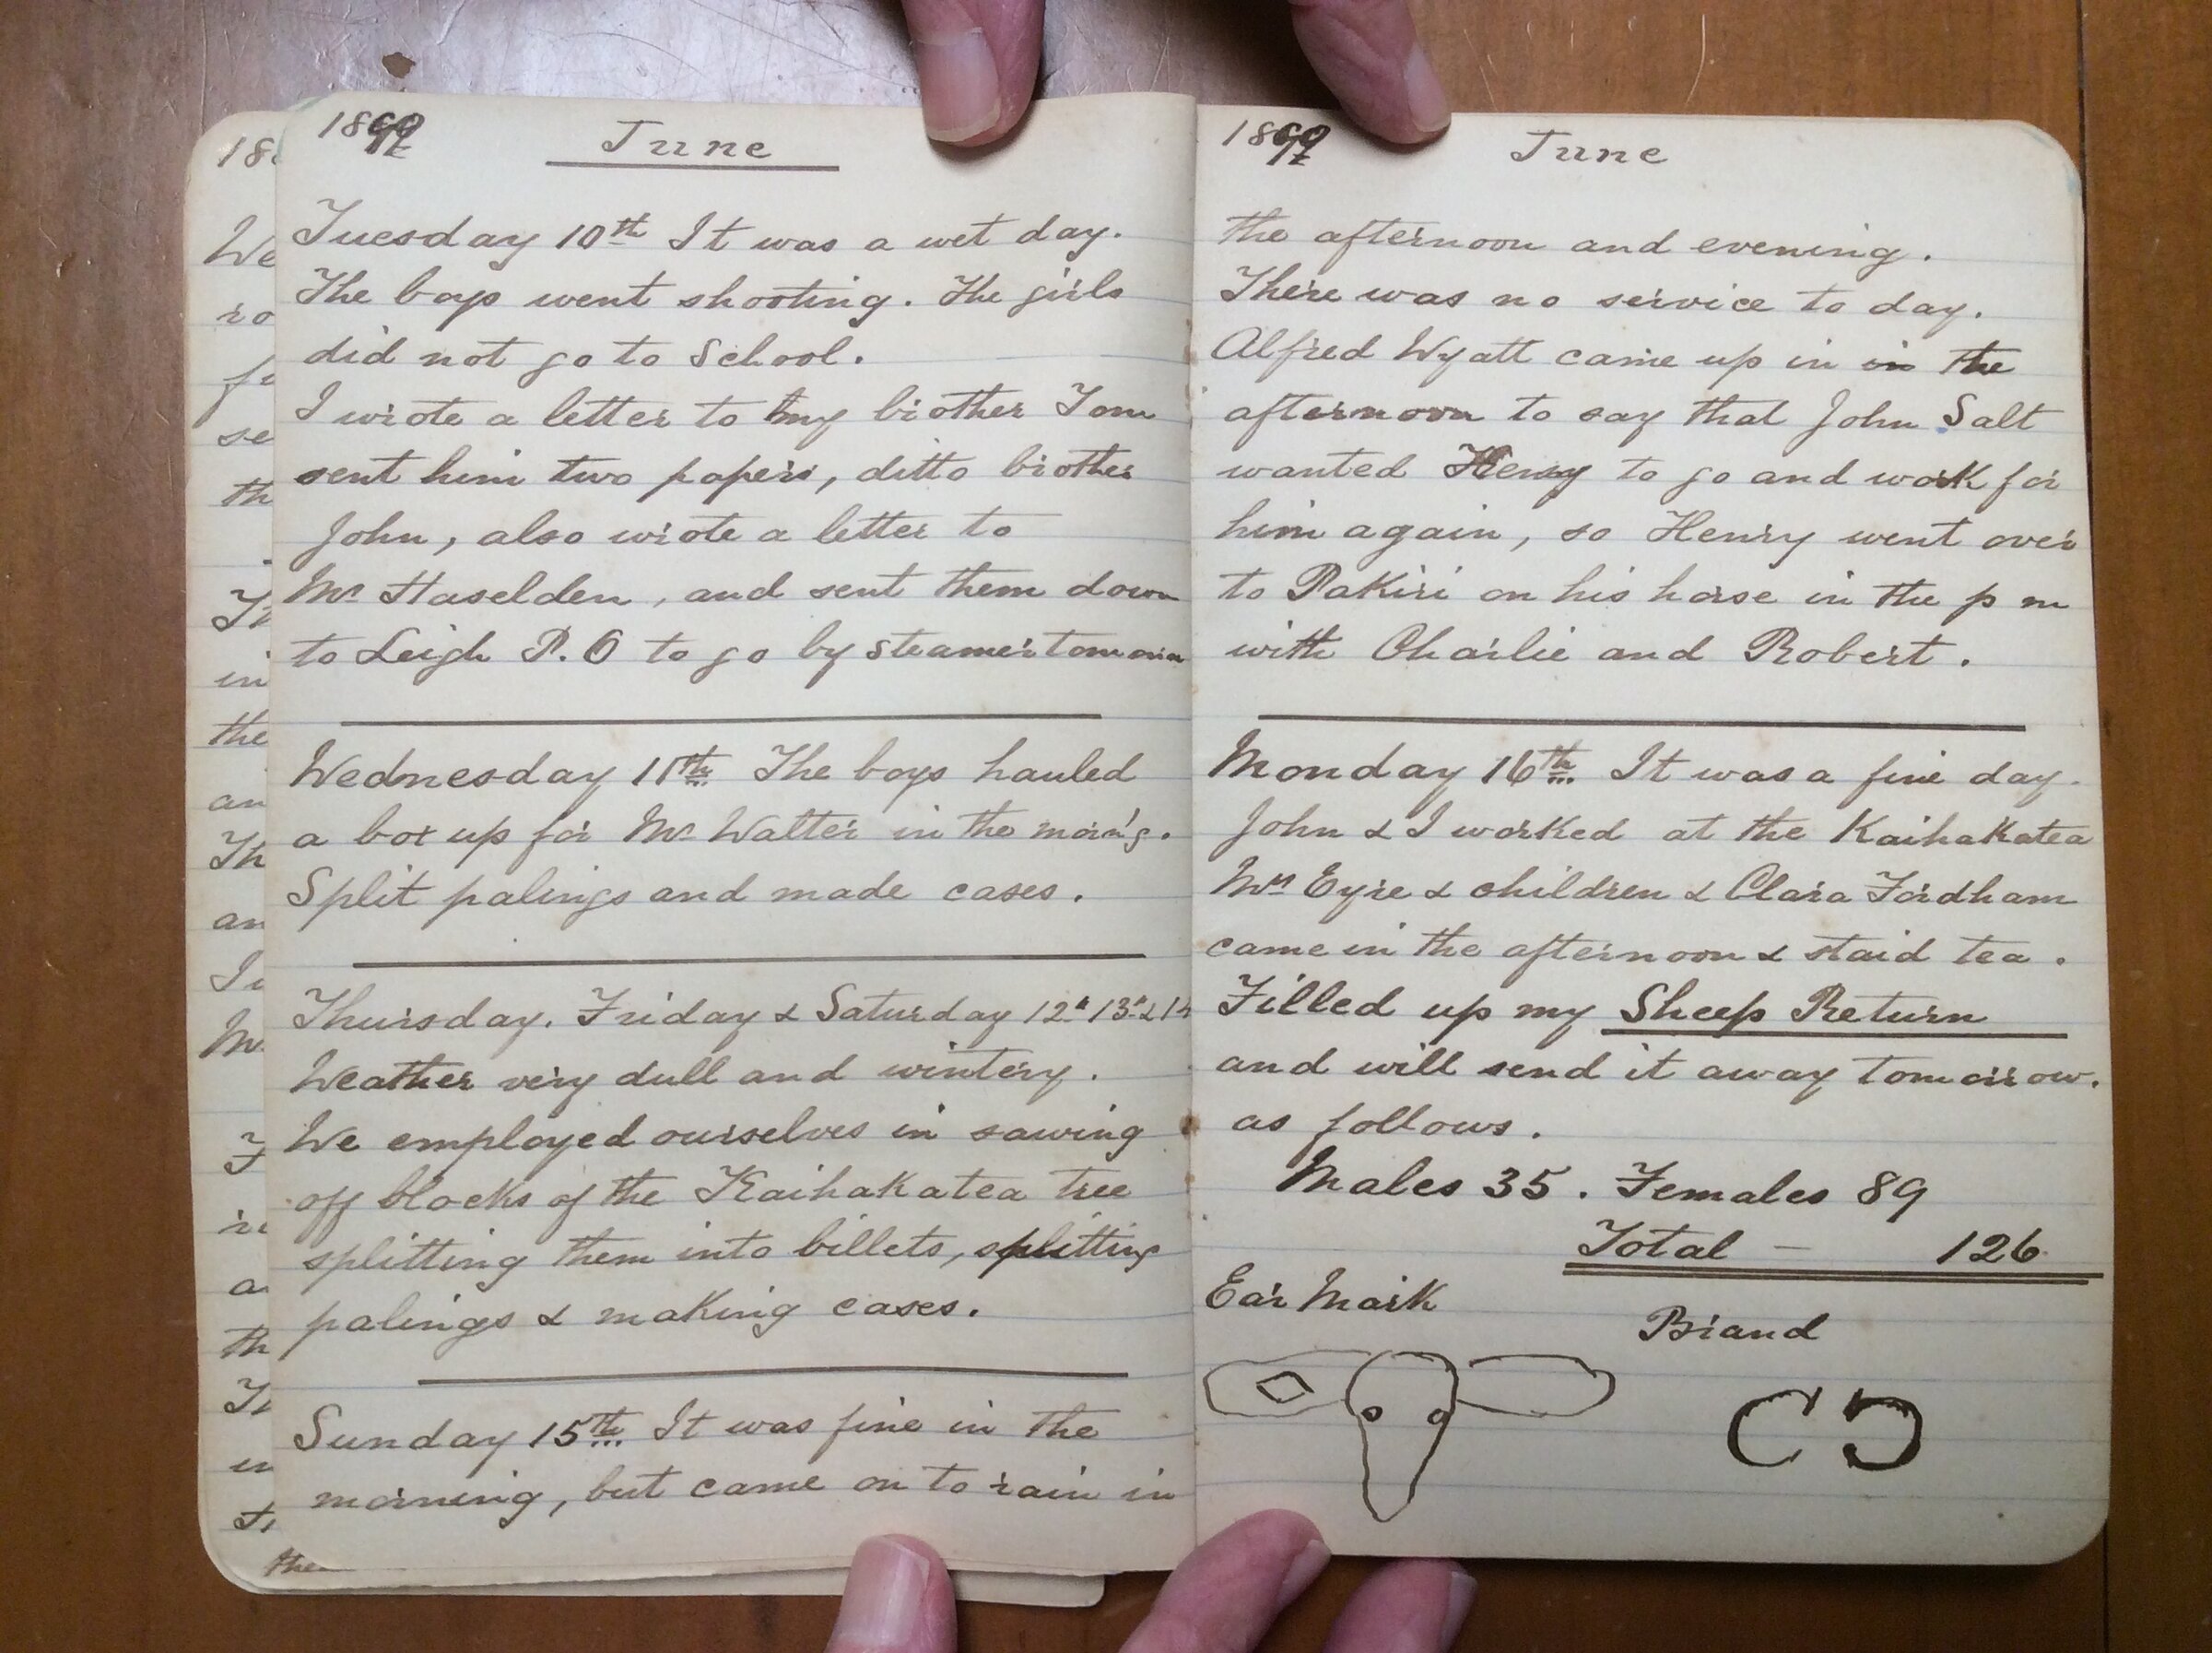 June
Tuesday 10th It was a wet day.
The boys went shooting. The girls
did not go to School.
I wrote a letter to my brother Tom
sent him two papers, ditto brother
John, also wrote a letter to
Mr Haselden, and sent them down
to Leigh P.O to go by steamer
Wednesday 11th The boys hauled
a box up for Mr Walter in the morn'g.
Split palings and made cases.
Thursday. Friday & Saturday 12th 13th & 14
Weather very dull and wintery.
We employed ourselves in sawing
off blocks of the Kaihakatea tree
splitting them into billets, splitting
palings & making cases.
Sunday 15th It was fine in the
morning, but came on to rain in
the
June
the afternoon and evening.
There was no service to day.
Alfred Wyatt came up in in the
afternoon to say that John Salt
wanted Henry to go and work for
him again, so Henry went over
to Pakiri on his horse in the p m
with Charlie and Robert.
Monday 16th It was a fine day.
John & I worked at the Kaihakatea
Mrs Eyre & children & Clara Fordham
came in the afternoon & staid tea.
Filled up my Sheep Return
and will send it away tomorrow.
as follows.
Males 35. Females 89
Total – 126
Ear Mark
Brand